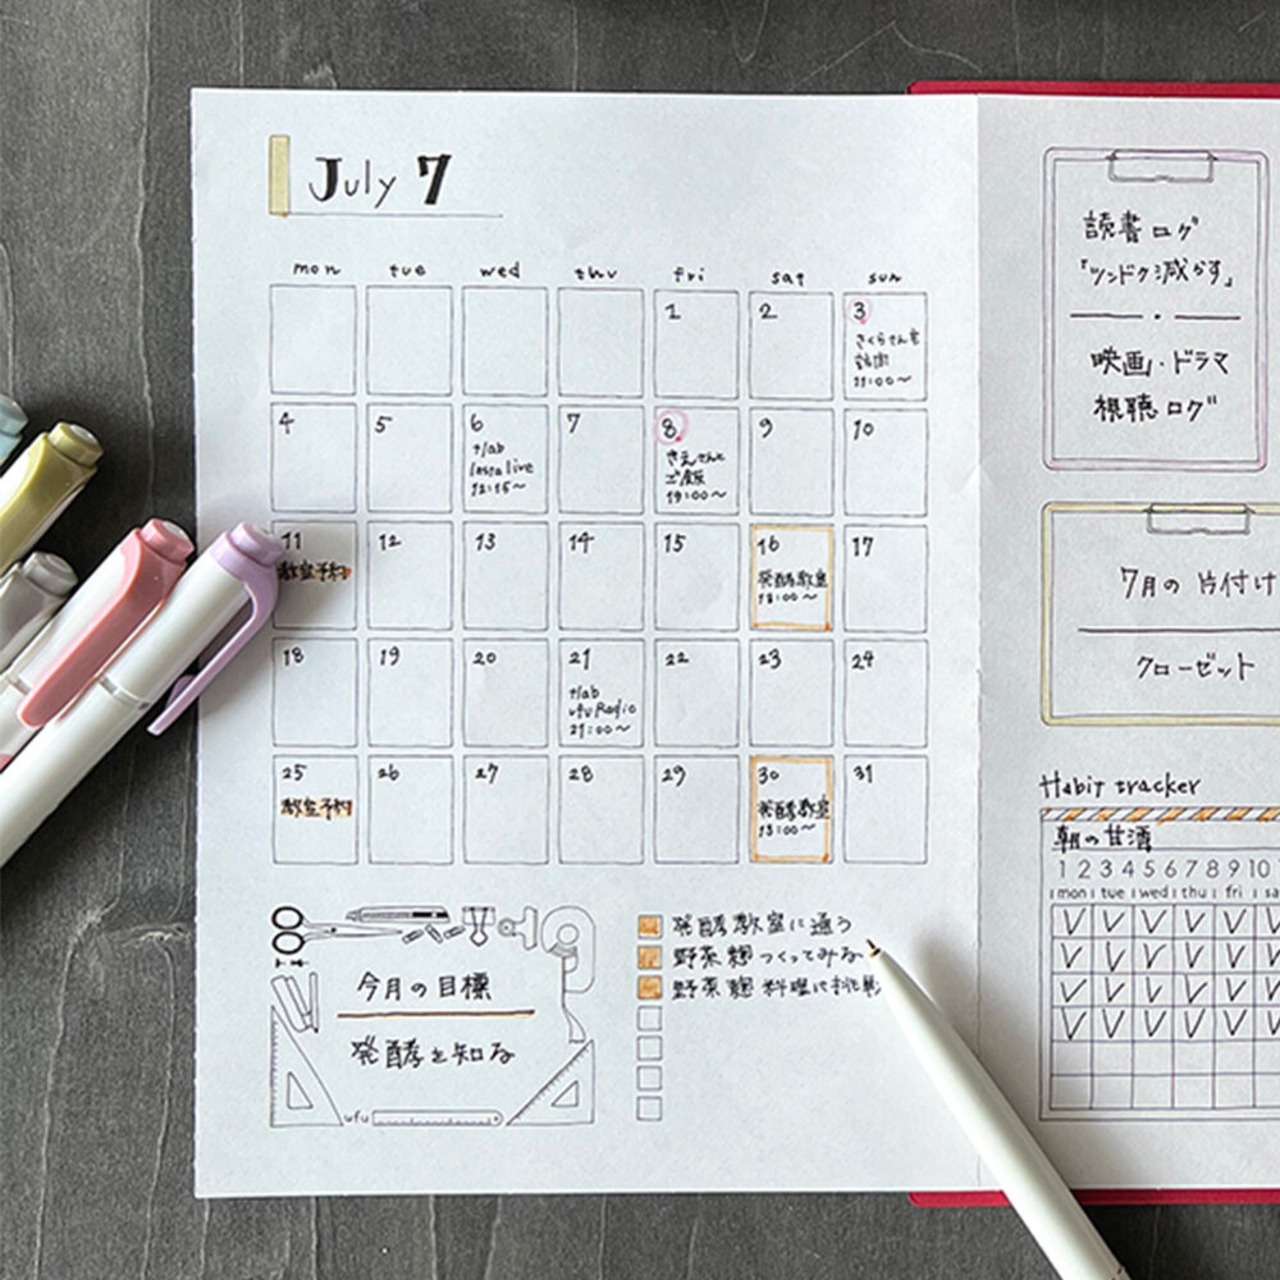 July 7
mon tue wed thu fri sat sun
1 2 3
さくらさん宅
訪問
11:00〜
4 5 6 7 8 9 10
+lab
Insta live
12:15〜
さえさんと
ご飯
19:00〜
11 12 13 14 15 16 17
教室予約
発酵教室
13:00〜
18 19 20 21 22 23 24
+lab
ufu Radio
21:00〜
25 26 27 28 29 30 31
教室予約
発酵教室
13:00〜
今月の目標
発酵を知る
ufu
発酵教室に通う
野菜麹つくってみる
野菜麹料理に挑戦
読書ログ
「ツンドク減らす」
映画・ドラマ
視聴ログ
7月の片付け
クローゼット
Habit tracker
朝の甘酒
1 2 3 4 5 6 7 8 9 10
mon tue wed thu fri sa